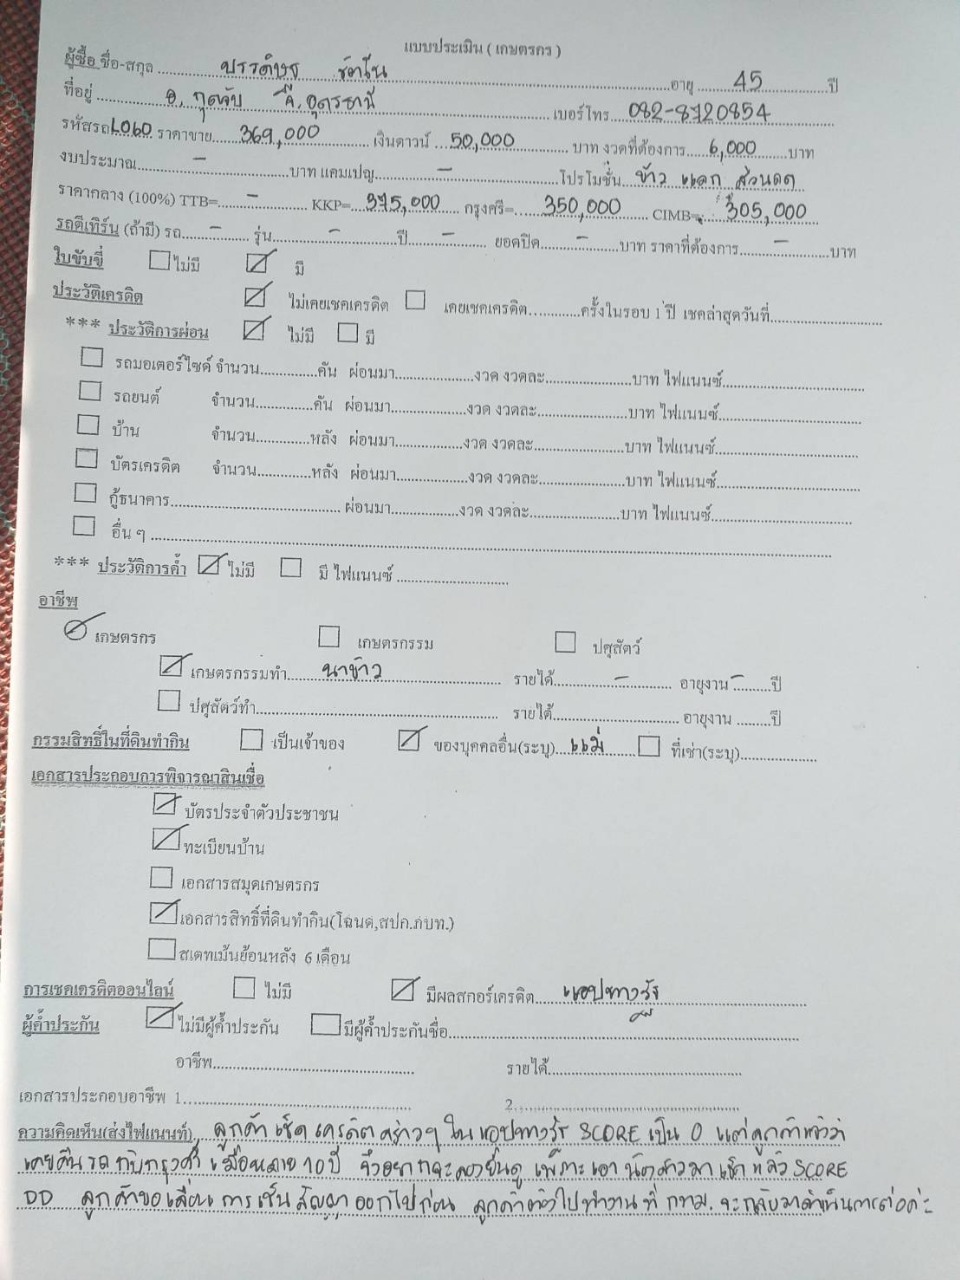 แบบประเมิน ( เกษตรกร )
ผู้ซื้อ ชื่อ-สกุล อายุ 45 ปี
ที่อยู่ อ. กุดจับ จ. อุดรธานี เบอร์โทร 082-8720854
รหัสรถ L060 ราคาขาย 369,000 เงินดาวน์ 50,000 บาท งวดที่ต้องการ 6,000 บาท
งบประมาณ - บาท แคมเปญ - โปรโมชั่น ข้าว แลก ส่วนลด
ราคากลาง (100%) TTB= - KKP= 375,000 กรุงศรี= 350,000 CIMB= 305,000
รถตีเทิร์น (ถ้ามี) รถ - รุ่น - ปี - ยอดปิด - บาท ราคาที่ต้องการ - บาท
ใบขับขี่ ไม่มี มี
ประวัติเครดิต ไม่เคยเชคเครดิต เคยเชคเครดิต ครั้งในรอบ 1 ปี เชคล่าสุดวันที่
*** ประวัติการผ่อน ไม่มี มี
รถมอเตอร์ไซด์ จำนวน คัน ผ่อนมา งวด งวดละ บาท ไฟแนนซ์
รถยนต์ จำนวน คัน ผ่อนมา งวด งวดละ บาท ไฟแนนซ์
บ้าน จำนวน หลัง ผ่อนมา งวด งวดละ บาท ไฟแนนซ์
บัตรเครดิต จำนวน หลัง ผ่อนมา งวด งวดละ บาท ไฟแนนซ์
กู้ธนาคาร ผ่อนมา งวด งวดละ บาท ไฟแนนซ์
อื่น ๆ
*** ประวัติการค้ำ ไม่มี มี ไฟแนนซ์
อาชีพ
เกษตรกร เกษตรกรรม ปศุสัตว์
เกษตรกรรมทำ นาข้าว รายได้ - อายุงาน - ปี
ปศุสัตว์ทำ รายได้ อายุงาน ปี
กรรมสิทธิ์ในที่ดินทำกิน เป็นเจ้าของ ของบุคคลอื่น(ระบุ) แม่ ที่เช่า(ระบุ)
เอกสารประกอบการพิจารณาสินเชื่อ
บัตรประจำตัวประชาชน
ทะเบียนบ้าน
เอกสารสมุดเกษตรกร
เอกสารสิทธิ์ที่ดินทำกิน(โฉนด,สปก.ภบท.)
สเตทเม้นย้อนหลัง 6 เดือน
การเชคเครดิตออนไลน์ ไม่มี มีผลสกอร์เครดิต แอปทางรัฐ
ผู้ค้ำประกัน ไม่มีผู้ค้ำประกัน มีผู้ค้ำประกันชื่อ
อาชีพ รายได้
เอกสารประกอบอาชีพ 1 2
ความคิดเห็น(ส่งไฟแนนท์) ลูกค้า เช็ค เครดิต คร่าวๆ ใน แอปทางรัฐ SCORE เป็น 0 แต่ลูกค้าแจ้งว่า
เคยคืน รถ กับกรุงศรี เมื่อหลาย 10 ปี จึงอยากจะลองยื่นดู เพราะ เอา มาเช็ก แล้ว SCORE
DD ลูกค้าขอเลื่อน การเซ็น สัญญา ออกไปก่อน ลูกค้าต้องไปทำงาน ที่ กทม. จะกลับมาดำเน็นการต่อค่ะ